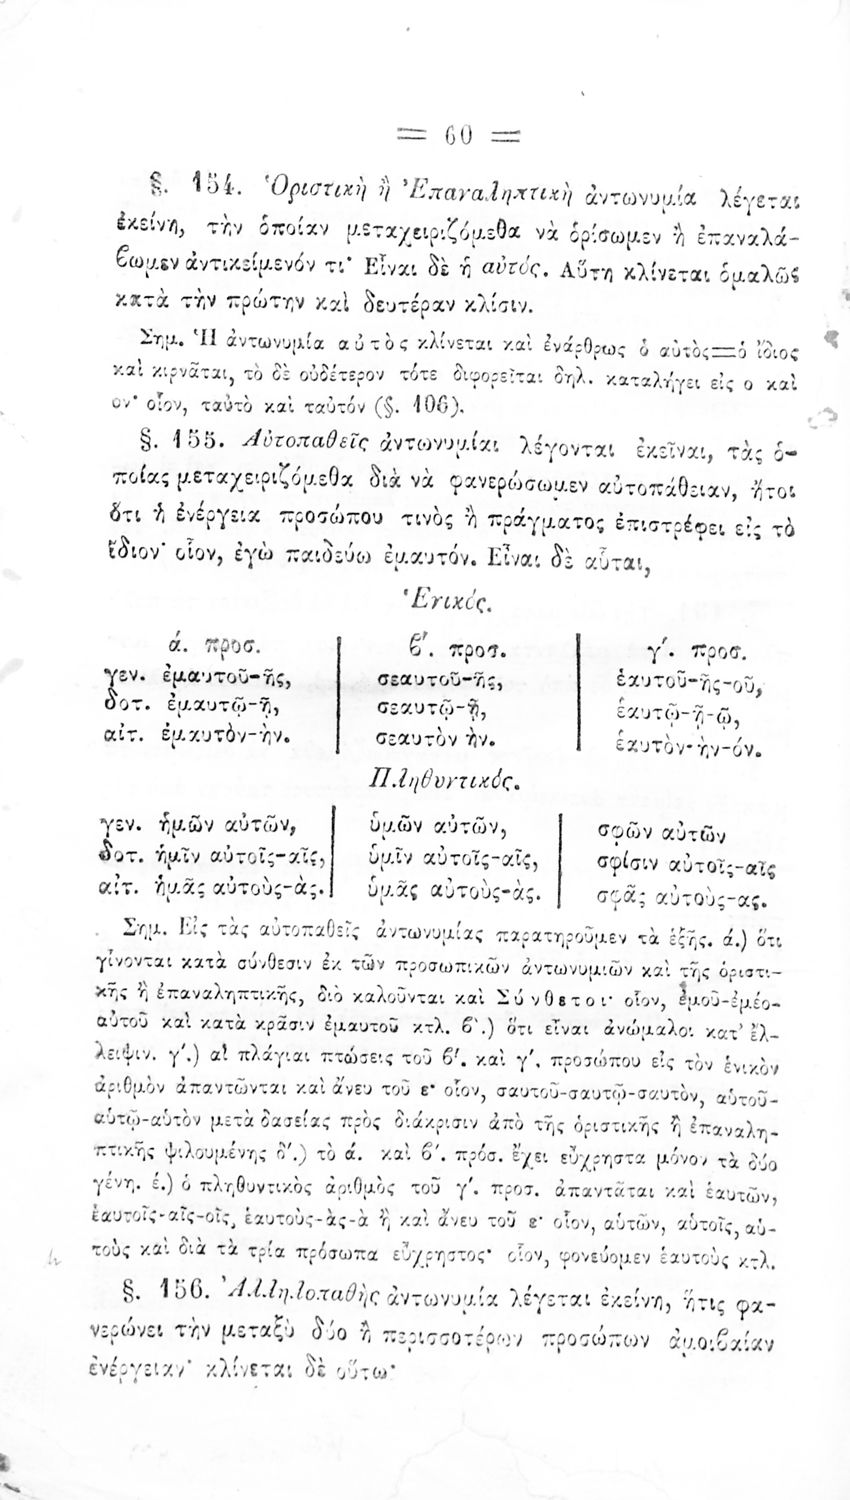 = 60 =
§. 154. Ὁριστικὴ ἢ Ἐπαναληπτικὴ ἀντωνυμία λέγεται
ἐκείνη, τὴν ὁποίαν μεταχειριζόμεθα νὰ ὁρίσωμεν ἢ ἐπαναλά-
βωμεν ἀντικείμενόν τι· Εἶναι δὲ ἡ αὐτός. Αὕτη κλίνεται ὁμαλῶς
κατὰ τὴν πρώτην καὶ δευτέραν κλίσιν.
Σημ. Ἡ ἀντωνυμία αὐτὸς κλίνεται καὶ ἐνάρθρως ὁ αὐτὸς=ὁ ἴδιος
καὶ κιρνᾶται, τὸ δὲ οὐδέτερον τότε διφορεῖται δηλ. καταλήγει εἰς ο καὶ
ον· οἷον, ταὐτὸ καὶ ταὐτόν (§. 106).
§. 155. Αὐτοπαθεῖς ἀντωνυμίαι λέγονται ἐκεῖναι, τὰς ὁ-
ποίας μεταχειριζόμεθα διὰ νὰ φανερώσωμεν αὐτοπάθειαν, ἤτοι
ὅτι ἡ ἐνέργεια προσώπου τινὸς ἢ πράγματος ἐπιστρέφει εἰς τὸ
ἴδιον· οἷον, ἐγὼ παιδεύω ἐμαυτόν. Εἶναι δὲ αὗται,
Ἑνικός.
ά. προσ. β′. προσ. γ′. προσ.
γεν. ἐμαυτοῦ-ῆς, σεαυτοῦ-ῆς, ἑαυτοῦ-ῆς-οῦ,
δοτ. ἐμαυτῷ-ῇ, σεαυτῷ-ῇ, ἑαυτῷ-ῇ-ῷ,
αἰτ. ἐμαυτὸν-ὴν. σεαυτὸν ὴν. ἑαυτὸν-ὴν-όν.
Πληθυντικός.
γεν. ἡμῶν αὐτῶν, ὑμῶν αὐτῶν, σφῶν αὐτῶν
δοτ. ἡμῖν αὐτοῖς-αῖς, ὑμῖν αὐτοῖς-αῖς, σφίσιν αὐτοῖς-αῖς
αἰτ. ἡμᾶς αὐτοὺς-ὰς. ὑμᾶς αὐτοὺς-ὰς. σφᾶς αὐτοὺς-ας.
Σημ. Εἰς τὰς αὐτοπαθεῖς ἀντωνυμίας παρατηροῦμεν τὰ ἑξῆς. ά.) ὅτι
γίνονται κατὰ σύνθεσιν ἐκ τῶν προσωπικῶν ἀντωνυμιῶν καὶ τῆς ὁριστι-
κῆς ἢ ἐπαναληπτικῆς, διὸ καλοῦνται καὶ Σύνθετοι· οἷον, ἐμοῦ-ἐμέο-
αὐτοῦ καὶ κατὰ κρᾶσιν ἐμαυτοῦ κτλ. β′.) ὅτι εἶναι ἀνώμαλοι κατ’ ἔλ-
λειψιν. γ′.) αἱ πλάγιαι πτώσεις τοῦ β′. καὶ γ′. προσώπου εἰς τὸν ἑνικὸν
ἀριθμὸν ἀπαντῶνται καὶ ἄνευ τοῦ ε· οἷον, σαυτοῦ-σαυτῷ-σαυτὸν, αὑτοῦ-
αὑτῷ-αὑτὸν μετὰ δασείας πρὸς διάκρισιν ἀπὸ τῆς ὁριστικῆς ἢ ἐπαναλη-
πτικῆς ψιλουμένης δ′.) τὸ ά. καὶ β′. πρόσ. ἔχει εὔχρηστα μόνον τὰ δύο
γένη. έ.) ὁ πληθυντικὸς ἀριθμὸς τοῦ γ′. προσ. ἀπαντᾶται καὶ ἑαυτῶν,
ἑαυτοῖς-αῖς-οῖς, ἑαυτοὺς-ὰς-ὰ ἢ καὶ ἄνευ τοῦ ε· οἷον, αὑτῶν, αὑτοῖς, αὑ-
τοὺς καὶ διὰ τὰ τρία πρόσωπα εὔχρηστος· οἷον, φονεύομεν ἑαυτοὺς κτλ.
§. 156. Ἀλληλοπαθὴς ἀντωνυμία λέγεται ἐκείνη, ἥτις φα-
νερώνει τὴν μεταξὺ δύο ἢ περισσοτέρων προσώπων ἀμοιβαίαν
ἐνέργειαν· κλίνεται δὲ οὕτω·